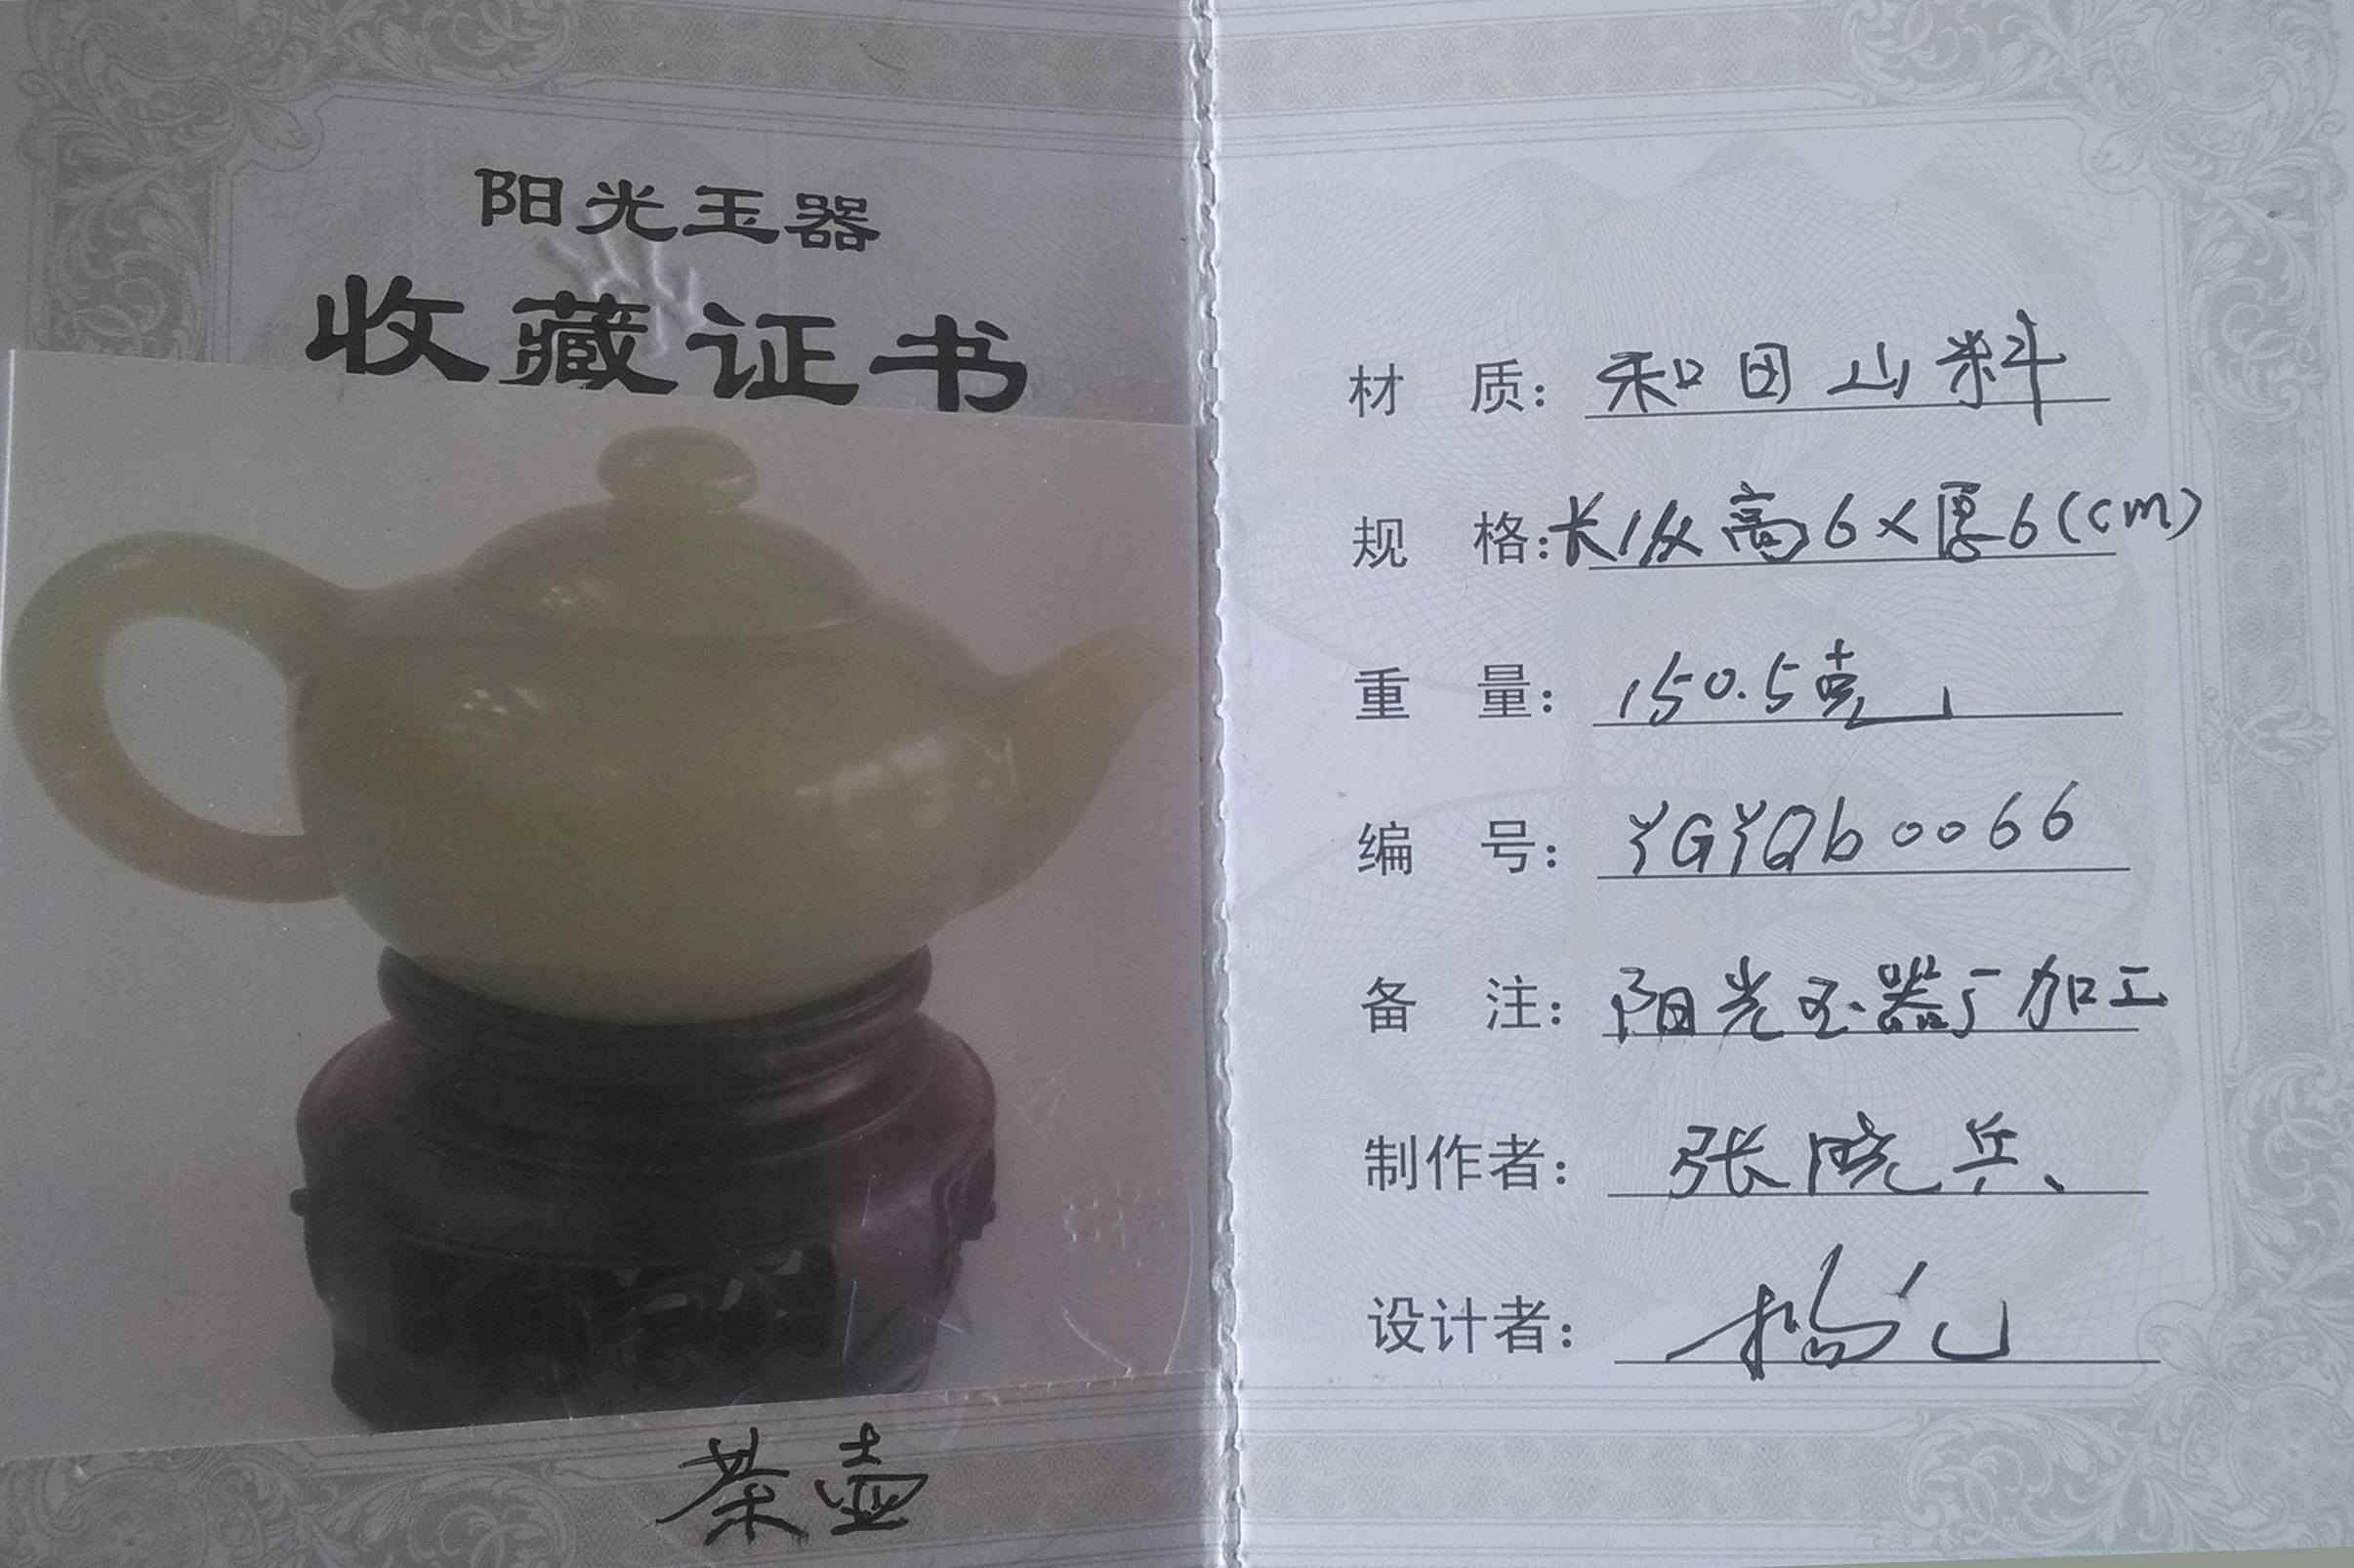 阳光玉器
收藏证书
茶壶
材 质: 和田山料
规 格: 高6×厚6(cm)
重 量: 150.5克
编 号: YGYQb0066
备 注: 阳光玉器厂加工
制作者: 张晓兵
设计者: 杨